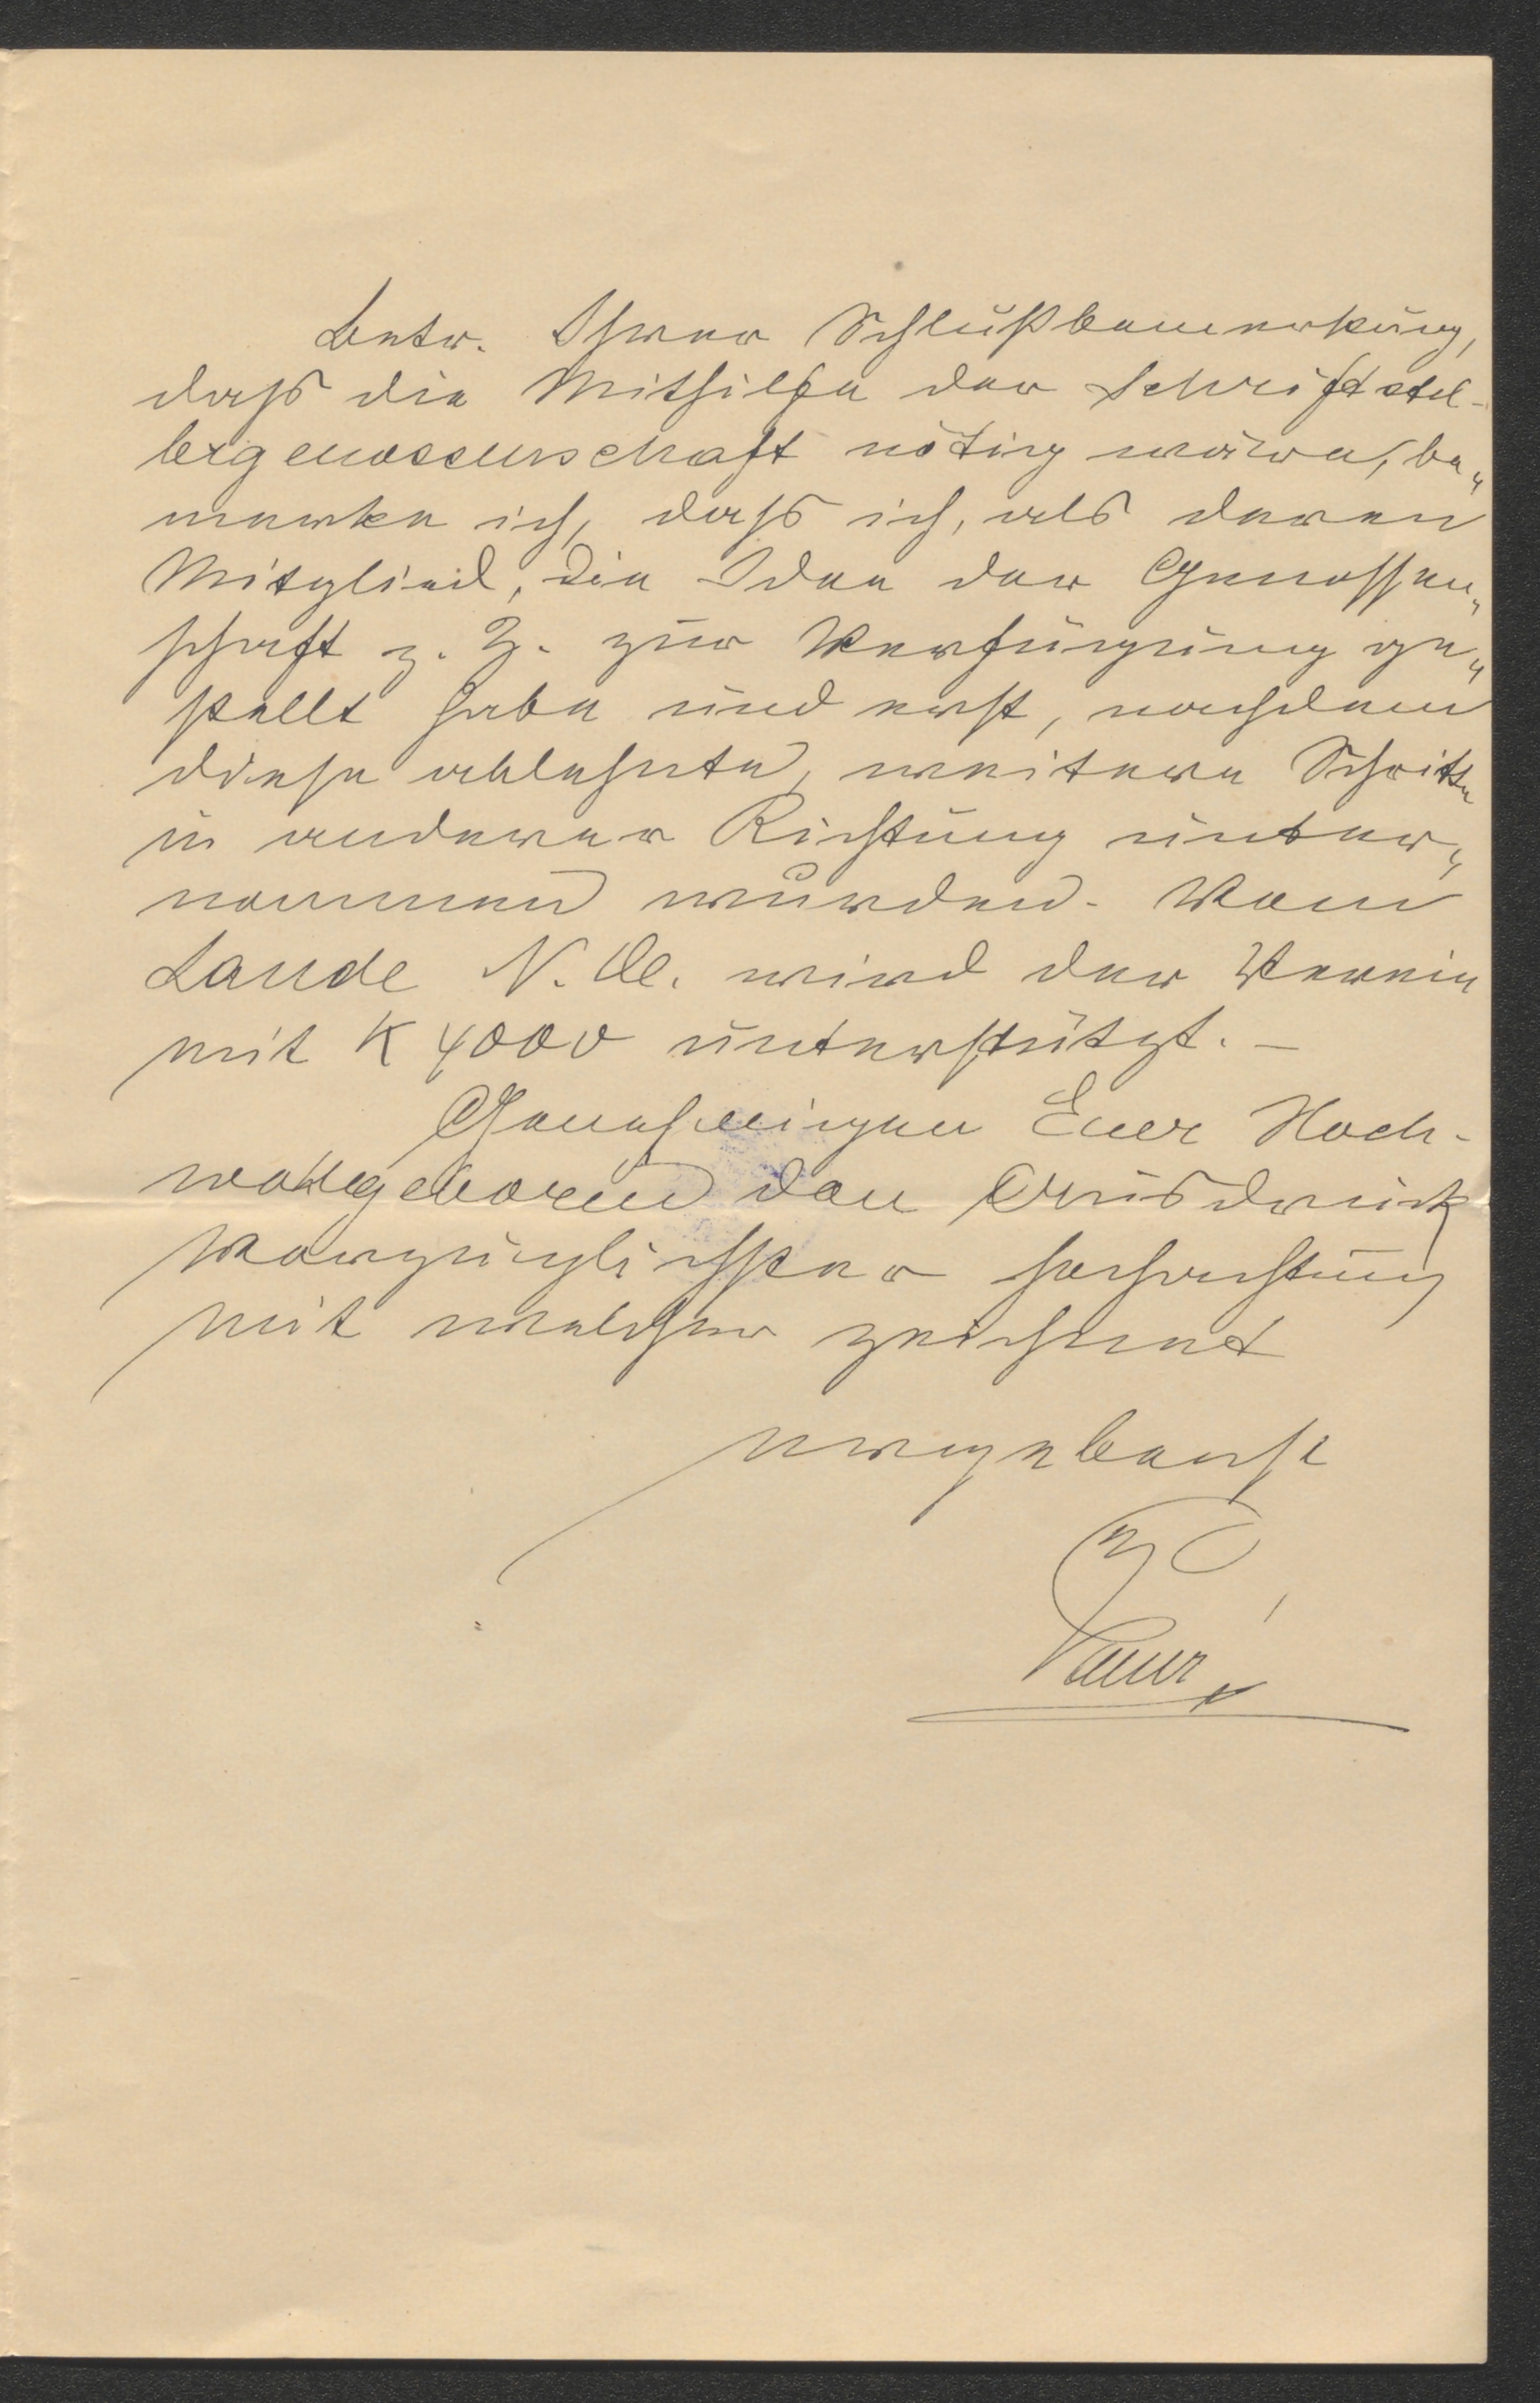 Betr. Ihrer Schlußbemerkung,
daß die Mithilfe der Schriftstel-
lergenossenschaft nötig wäre, be„
merke ich, daß ich, als deren
Mitglied, die Idee der Genossen„
schaft z. Z. zur Verfügung ge„
stellt habe und erst, nachdem
diese ablehnte, weitere Schritte
in anderer Richtung unter„
nommen wurden. Vom
Lande N. Oe. wird der Verein
mit K 4000 unterstützt. –
Genehmigen Euer Hoch-
wohlgeboren den Ausdruck
vorzüglichster Hochachtung
mit welcher zeichnet
ergebenst